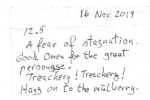 16 Nov. 2019
12.5
A fear of stagnation.
Good Omen for the great
personage!
Treachery! Treachery!
Hang on to the mulberry.